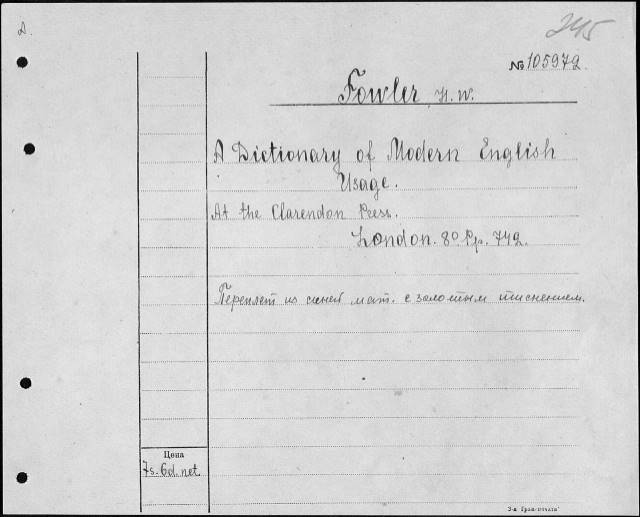 245
№ 105972
Fowler H. W.
A Dictionary of Modern English
Usage.
At the Clarendon Press.
London. 8° Pp. 742.
Переплет из синей мат. с золотым тиснением.
Цена
7s. 6d. net